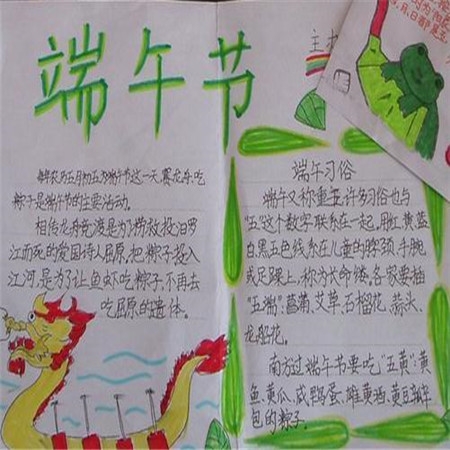 端午节
每农历五月初五为端午节这一天,赛龙舟、吃
粽子是端午节的主要活动。
相传龙舟竞渡是为了捞救投汨罗
江而死的爱国诗人屈原,把粽子投入
江河,是为了让鱼虾吃粽子,不再去
吃屈原的遗体。
主
端午习俗
端午又称重五,许多习俗也与
“五”这个数字联系在一起,用红、黄、蓝
白、黑五色线系在儿童的脖颈、手腕
或足踝上,称为长命缕,各家要插
“五端”:菖蒲、艾草、石榴花、蒜头、
龙船花。
南方过端午节要吃“五黄”:黄
鱼、黄瓜、咸鸭蛋、雄黄酒、黄豆瓣
包的粽子。